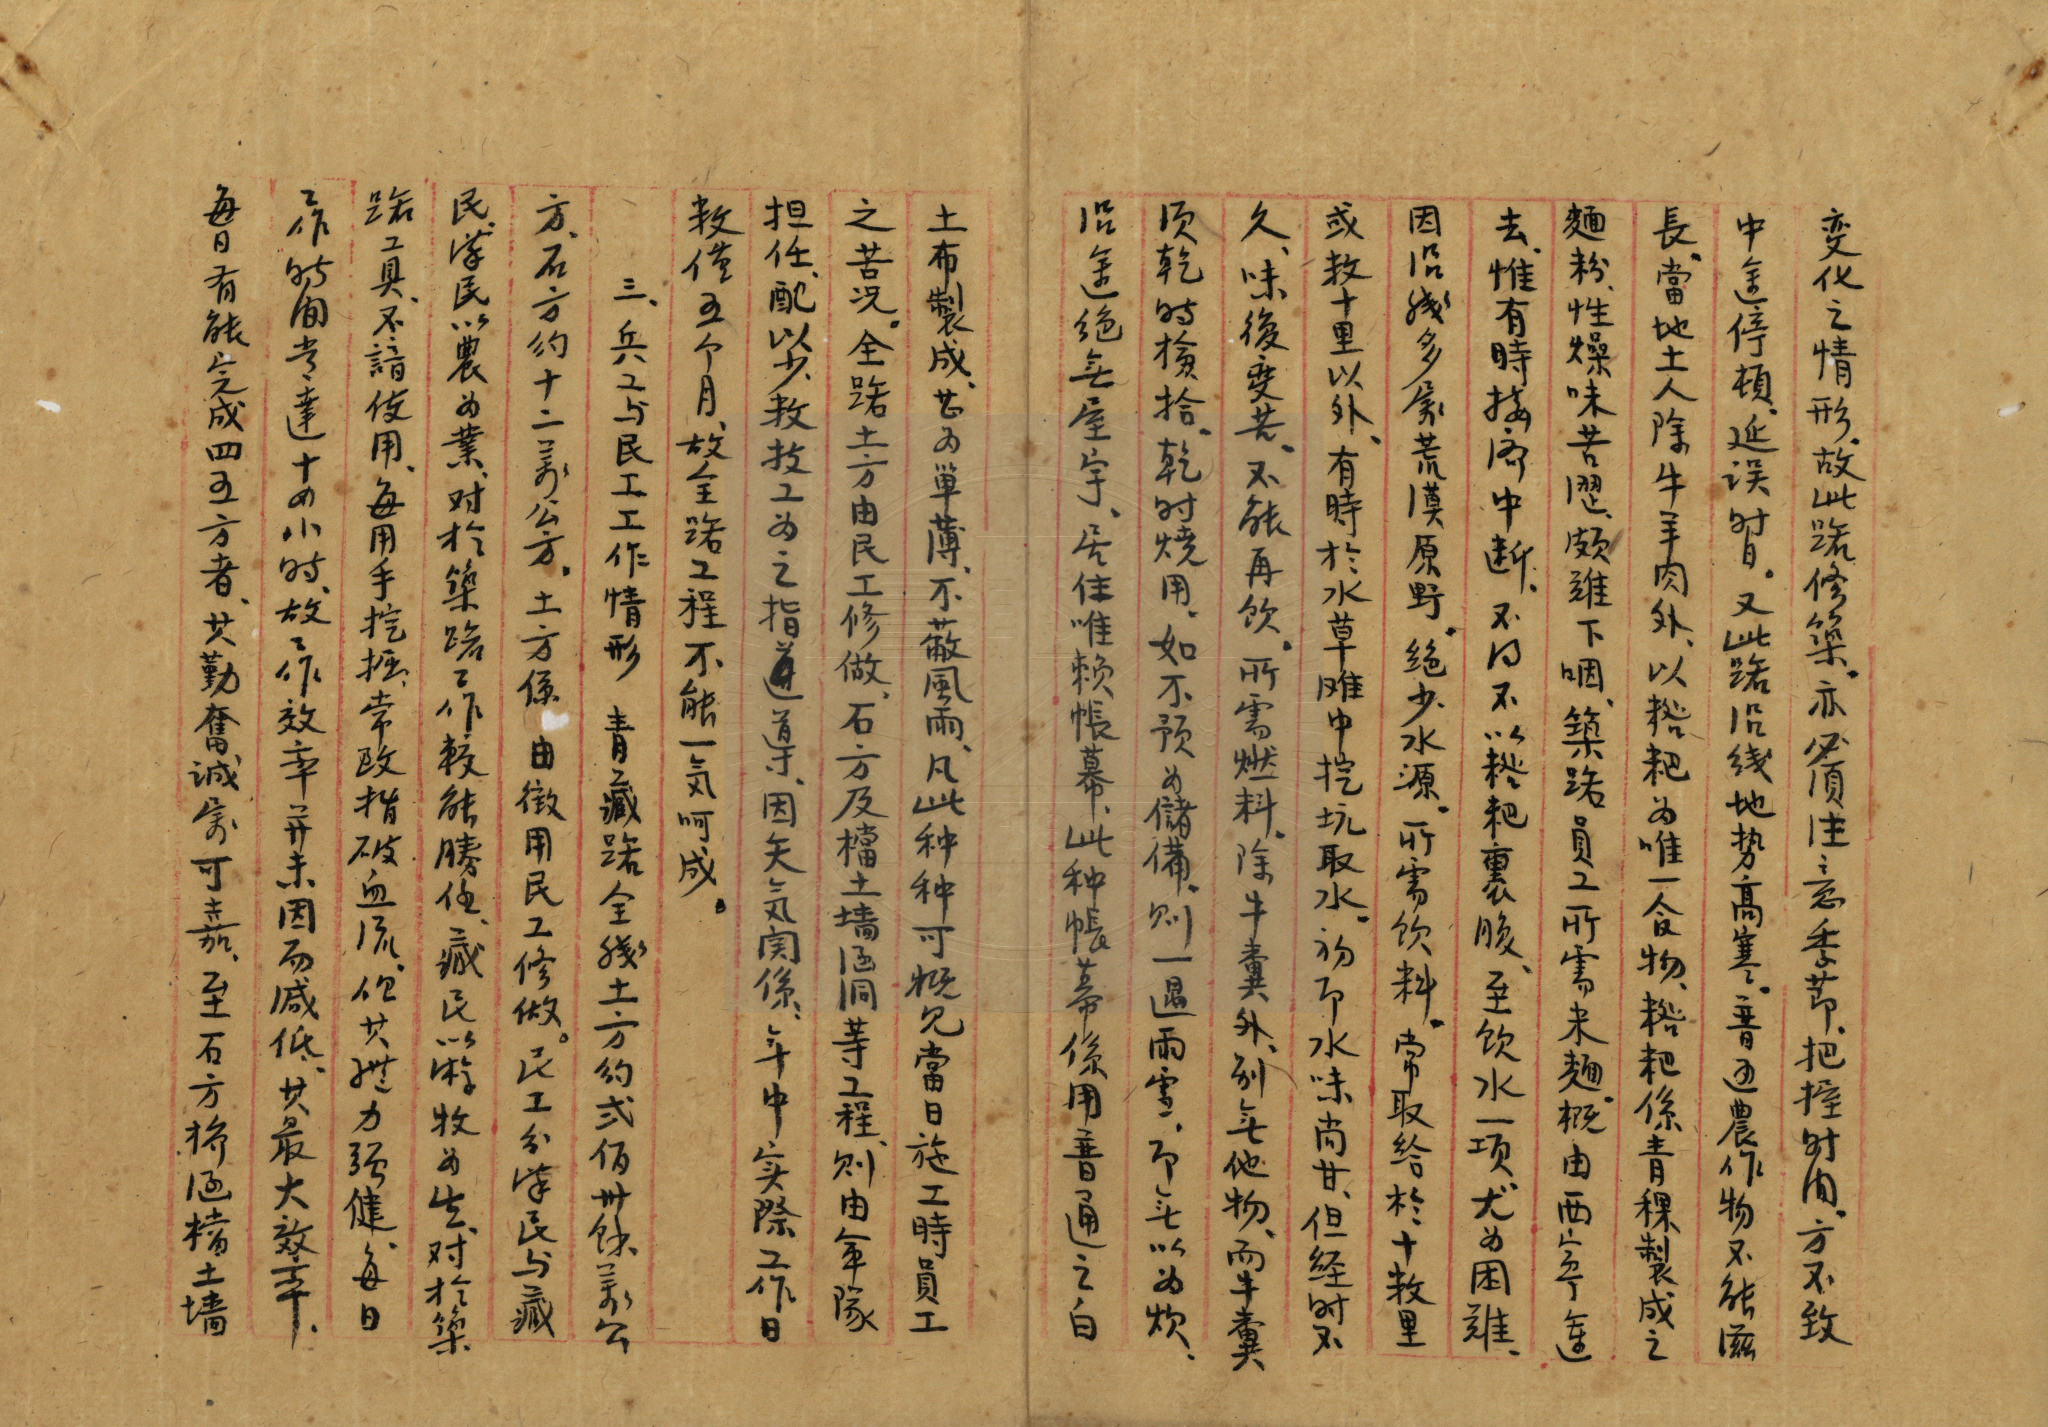 变化之情形、故此路修築、亦必須注意季節、把握时间、方不致
中途停頓、延误时日。又此路沿线地势高寒。普通農作物不能滋
長。當地土人除牛羊肉外、以糌粑为唯一食物、糌粑係青稞製成之
麵粉、性燥味苦澀、頗難下咽、築路員工所需米麵。概由西寧運
去、惟有時接济中断、不得不以糌粑裹腹、至饮水一项、尤为困难、
因沿綫多属荒漠原野。绝少水源。所需饮料。常取给於十数里
或数十里以外、有時於水草难中挖坑取水。初即水味尚甘、但经时不
久、味後变苦。不能再饮。所需燃料。除牛糞外、别无他物、而牛糞
须乾时檢拾、乾时燒用、如不预为儲備、则一遇雨雪、即无以为炊、
沿途绝无屋宇、居住唯赖帳幕、此种帳幕係用普通之白
土布製成、甚为單薄、不蔽風雨、凡此种种可概见當日施工時員工
之苦况。全路土方由民工修做、石方及檔土墙涵洞等工程、则由軍隊
担任、配以少数技工为之指導、因天气関係、年中实際工作日
数僅五个月、故全路工程不能一気呵成。
三、兵工与民工工作情形 青藏路全綫土方約弍佰卅餘萬公
方、石方约十二萬公方。土方係由徵用民工修做。民工分漢民与藏
民、漢民以農为業、对於築路工作較能勝任、藏民以游牧为生、对於築
路工具、不諳使用、每用手挖掘、常致指破血流、但其體力强健、每日
工作时间常達十四小时、故工作效率并未因而减低、其最大效率、
每日有能完成四五方者、其勤奮誠属可嘉、至石方橋涵檔土墙